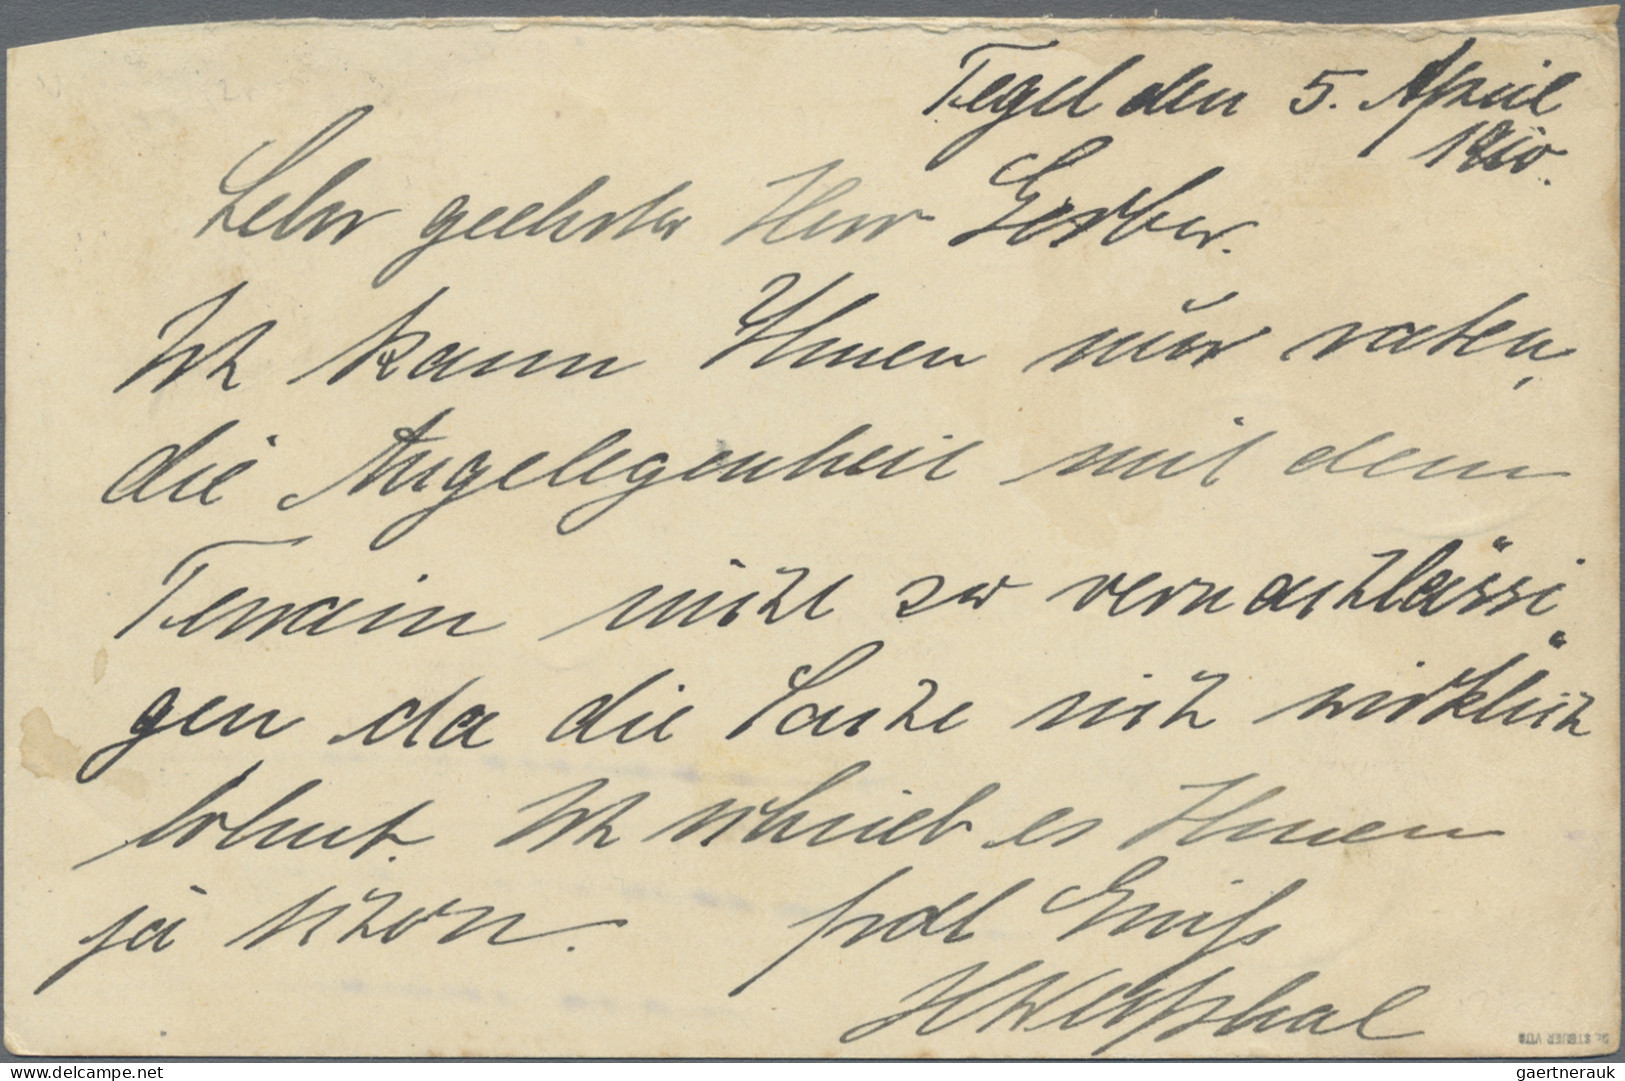 Tegel den 5. April
1910.
Sehr geehrter Herr Gerber.
Ich kann Ihnen nur raten,
die Angelegenheit mit dem
Terrain nicht zu vernachlässi
gen da die Sache sich wirklich
lohnt. Ich schrieb es Ihnen
ja schon. frdl Gruß
HWestphal
Dr. STEUER VÖB
delcampe.net
gaertnerauk